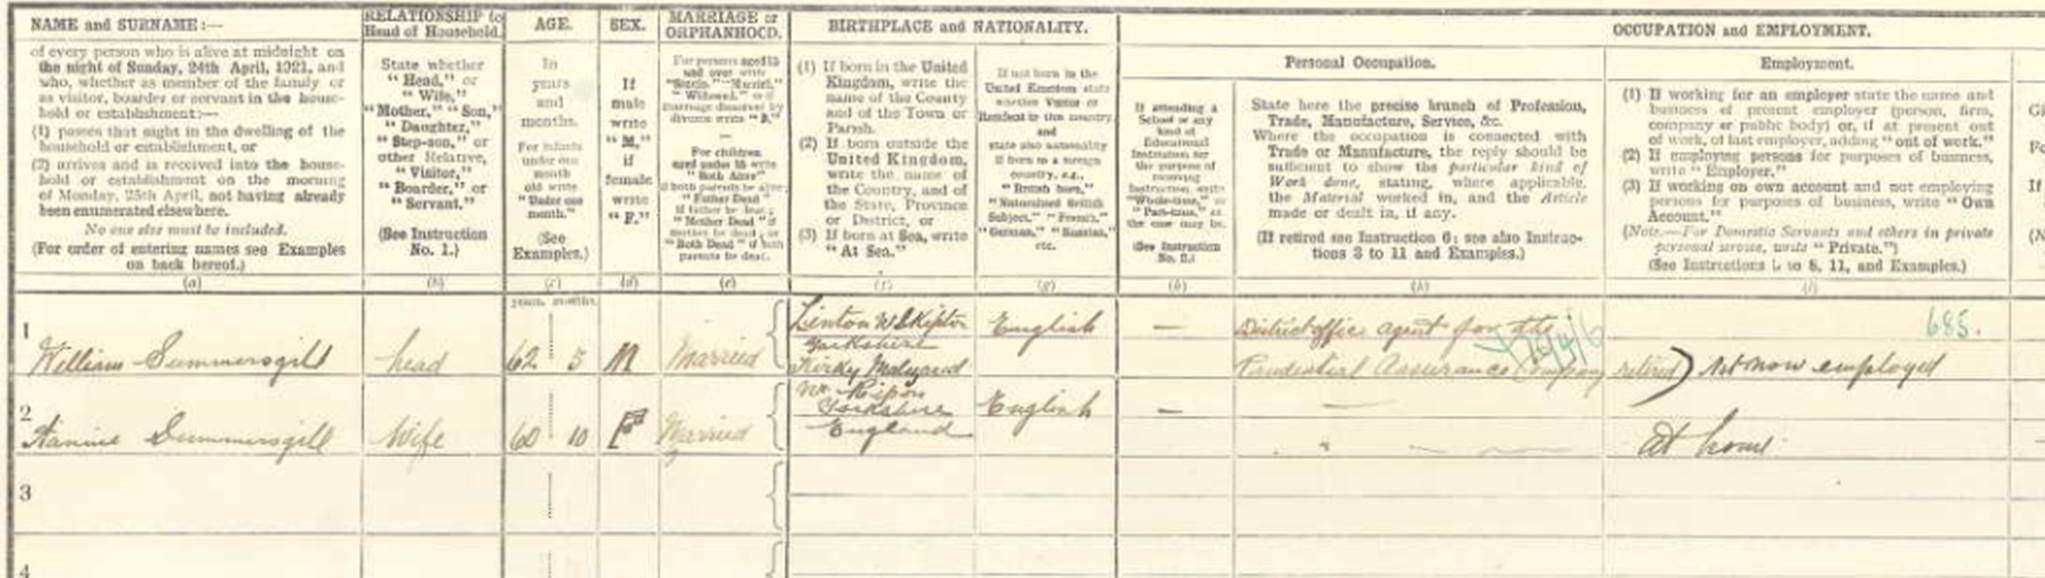 NAME and SURNAME:—
of every person who is alive at midnight on
the night of Sunday, 24th April, 1921, and
who, whether as member of the family or
as visitor, boarder or servant in the house-
hold or establishment:—
(1) passes that night in the dwelling of the
household or establishment, or
(2) arrives and is received into the house-
hold or establishment on the morning
of Monday, 25th April, not having already
been enumerated elsewhere.
No one else must be included.
(For order of entering names see Examples
on back hereof.)
(a)
RELATIONSHIP to
Head of Household.
State whether
"Head," or
"Wife,"
"Mother," "Son,"
"Daughter,"
"Step-son," or
other Relative,
"Visitor,"
"Boarder," or
"Servant."
(See Instruction
No. 1.)
(b)
AGE.
In
years
and
months.
For infants
under one
month
old write
"Under one
month."
(See
Examples.)
(c)
SEX.
If
male
write
"M,"
if
female
write
"F."
(d)
MARRIAGE or
ORPHANHOOD.
For persons aged 15
and over write
"Single," "Married,"
"Widowed," or if
marriage dissolved by
divorce write "D."
For children
aged under 15 write
"Both Alive"
if both parents be alive;
"Father Dead"
if father be dead;
"Mother Dead" if
mother be dead; or
"Both Dead" if both
parents be dead.
(e)
BIRTHPLACE and NATIONALITY.
(1) If born in the United
Kingdom, write the
name of the County
and of the Town or
Parish.
(2) If born outside the
United Kingdom,
write the name of
the Country, and of
the State, Province
or District, or
(3) If born at Sea, write
"At Sea."
(f)
If not born in the
United Kingdom state
whether Visitor or
Resident in this country,
and
state also nationality
if born in a foreign
country, e.g.,
"British born,"
"Naturalised British
Subject," "French,"
"German," "Russian,"
etc.
(g)
OCCUPATION and EMPLOYMENT.
If attending a
School or any
kind of
Educational
Institution for
the purpose of
receiving
Instruction, write
"Whole-time," or
"Part-time," as
the case may be.
(See Instruction
(h)
Personal Occupation.
State here the precise branch of Profession,
Trade, Manufacture, Service, &c.
Where the occupation is connected with
Trade or Manufacture, the reply should be
sufficient to show the particular kind of
Work done, stating, where applicable,
the Material worked in, and the Article
made or dealt in, if any.
(If retired see Instruction 6; see also Instruc-
tions 3 to 11 and Examples.)
(k)
Employment.
(1) If working for an employer state the name and
business of present employer (person, firm,
company or public body) or, if at present out
of work, of last employer, adding "out of work."
(2) If employing persons for purposes of business,
write "Employer."
(3) If working on own account and not employing
persons for purposes of business, write "Own
Account."
(Note.—For Domestic Servants and others in private
personal service, write "Private.")
(See Instructions to 8, 11, and Examples.)
(l)
years. months.
1
William Summersgill
head
62 5
M
Married
Linton Nr Skipton
Yorkshire
English
—
District office agent for the
Prudential Assurance Company retired)
Not now employed
685.
2
Nannie Summersgill
Wife
60 10
F
Married
Kirky Malzeard
Nr. Ripon
Yorkshire
England
English
—
at home
3
4